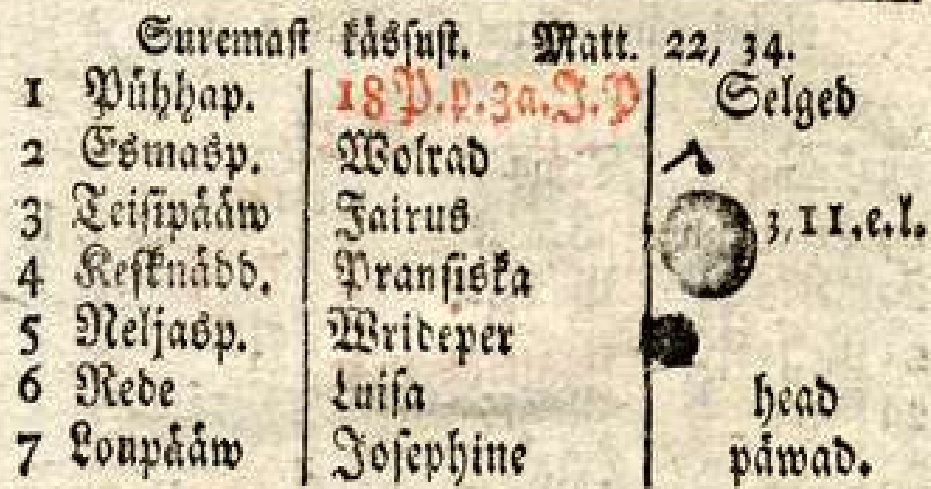 Suremast kässust. Matt. 22, 34.
1 Pühhap. 18 P. p. 3a. J. P Selged
2 Esmasp. Wolrad
3 Teisipääw Jairus 3, 11. e. l.
4 Kesknädd. Pransiska
5 Neljasp. Wrideper
6 Rede Luisa head
7 Loupääw Josephine päwad.